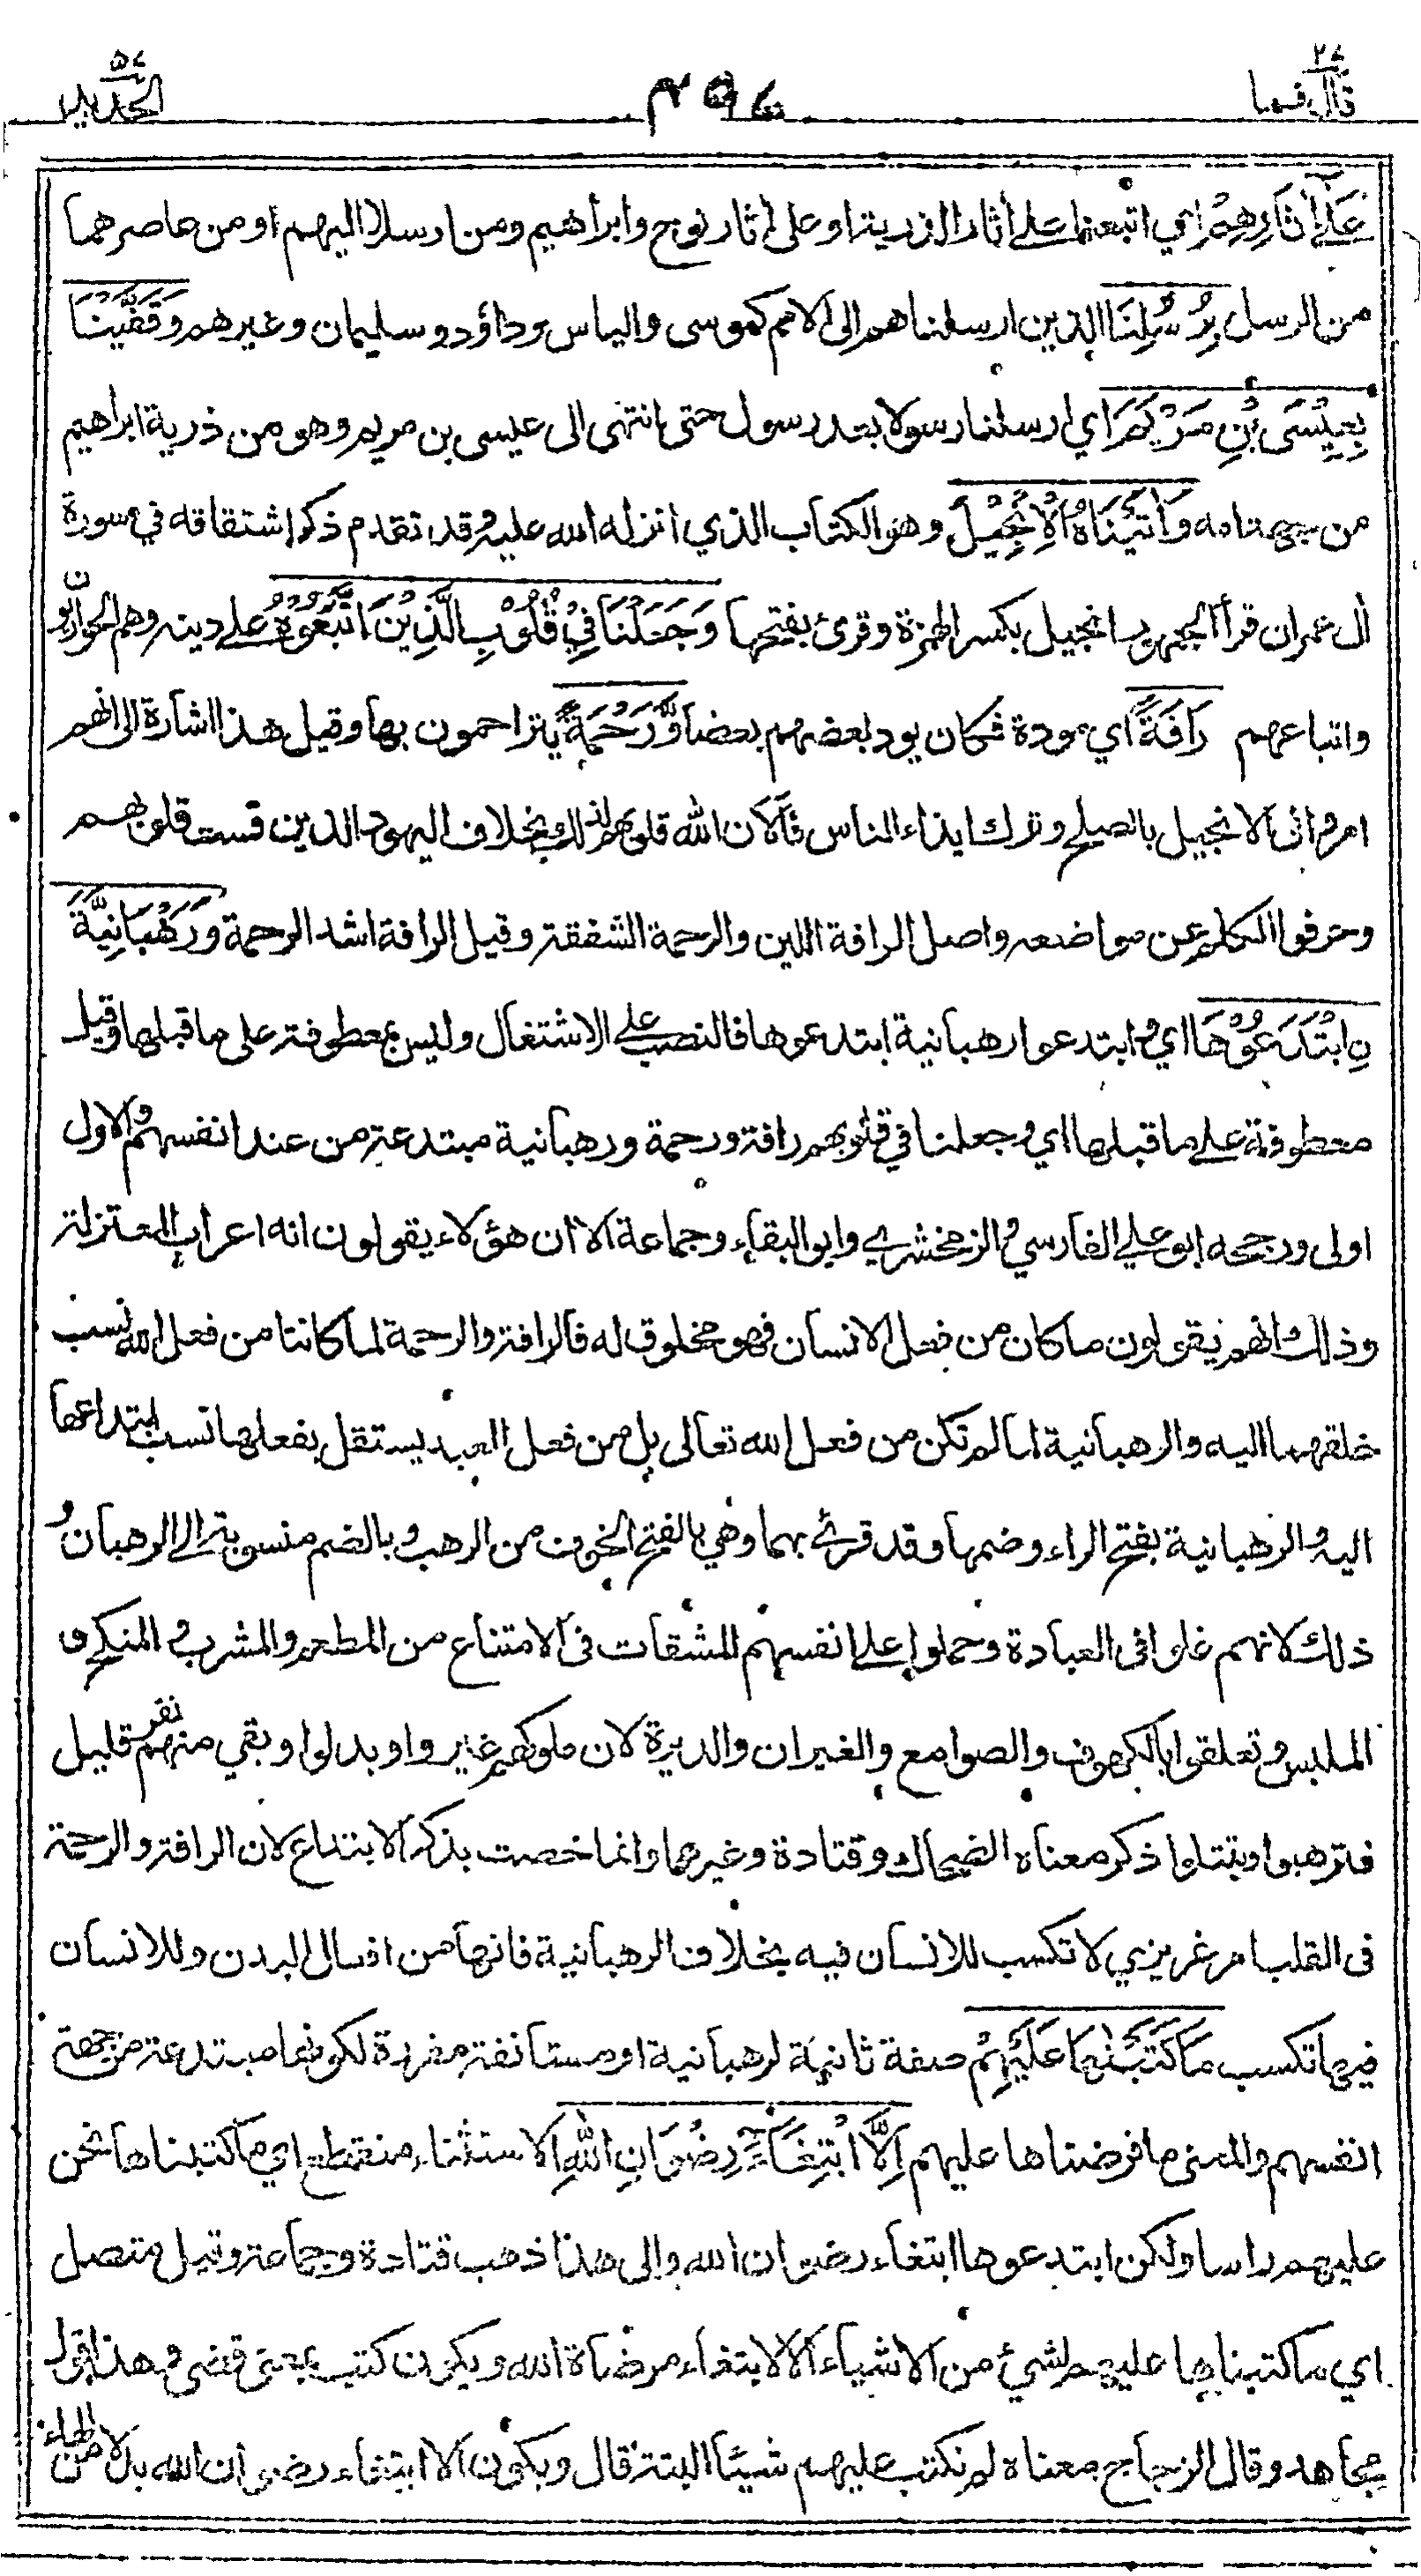 قال فما ٢٧
٤٥٧
الحديد ٥٧
عَلٰٓى اٰثَارِهِمْ اي اتبعنا على اثار الذرية او على اثار نوح وابراهيم ومن ارسلا اليهم او من عاصرهما
من الرسل بِرُسُلِنَا الذين ارسلناهم الى الامم كموسى والياس وداؤد وسليمان وغيرهم وَقَفَّيْنَا
بِعِيْسَى بْنِ مَرْيَمَ اي ارسلنا رسولا بعد رسول حتى انتهى الى عيسى بن مريم وهو من ذرية ابراهيم
من جهة امه وَاٰتَيْنَاهُ الْاِنْجِيْلَ وهو الكتاب الذي انزله الله عليه وقد تقدم ذكر اشتقاقه في سورة
ال عمران قرأ الجمهور انجيل بكسر الهمزة وقرئ بفتحها وَجَعَلْنَا فِيْ قُلُوْبِ الَّذِيْنَ اتَّبَعُوْهُ على دينه وهم الحواريون
واتباعهم رَافَةً اي مودة فكان يود بعضهم بعضا وَّرَحْمَةً يتراحمون بها وقيل هذا اشارة الى انهم
امروا في الانجيل بالصلح وترك ايذاء الناس فألان الله قلوبهم لذلك بخلاف اليهود الذين قست قلوبهم
وحرفوا الكلم عن مواضعه واصل الرافة اللين والرحمة الشفقة وقيل الرافة اشد الرحمة وَرَهْبَانِيَّةً
نِ ابْتَدَعُوْهَا اي وابتدعوا رهبانية ابتدعوها فالنصب على الاشتغال وليس بمعطوفة على ما قبلها وقيل
معطوفة على ما قبلها اي وجعلنا في قلوبهم رافة ورحمة ورهبانية مبتدعة من عند انفسهم والاول
اولى ورجحه ابو علي الفارسي والزمخشري وابو البقاء وجماعة الا ان هؤلاء يقولون انه اعراب المعتزلة
وذلك انهم يقولون ما كان من فعل الانسان فهو مخلوق له فالرافة والرحمة لما كانتا من فعل الله نسب
خلقهما اليه والرهبانية لما لم تكن من فعل الله تعالى بل من فعل العبد يستقل بفعلها نسب ابتداعها
اليه والرهبانية بفتح الراء وضمها وقد قرئ بهما وهي بالفتح الخوف من الرهب وبالضم منسوبة الى الرهبان و
ذلك لانهم غلوا في العبادة وحملوا على انفسهم المشقات في الامتناع من المطعم والمشرب والمنكح و
الملبس وتعلقوا بالكهوف والصوامع والغيران والديرة لان ملوكهم غيروا وبدلوا وبقي منهم نفر قليل
فترهبوا وتبتلوا ذكر معناه الضحاك وقتادة وغيرهما وانما خصت بذكر الابتداع لان الرافة والرحمة
في القلب امر غريزي لا تكسب للانسان فيه بخلاف الرهبانية فانها من افعال البدن وللانسان
فيها تكسب مَا كَتَبْنٰهَا عَلَيْهِمْ صفة ثانية لرهبانية او مستانفة مقررة لكونها مبتدعة من جهة
انفسهم والمعنى ما فرضناها عليهم اِلَّا ابْتِغَآءَ رِضْوَانِ اللّٰهِ الاستثناء منقطع اي ما كتبناها نحن
عليهم راسا ولكن ابتدعوها ابتغاء رضوان الله والى هذا ذهب قتادة وجماعة وقيل متصل
اي ما كتبناها عليهم لشئ من الاشياء الا لابتغاء مرضاة الله ويكون كتب بمعنى قضى وهذا قول
مجاهد وقال الزجاج معناه لم نكتب عليهم شيئا البتة قال ويكون الا ابتغاء رضوان الله بدلا من الهاء